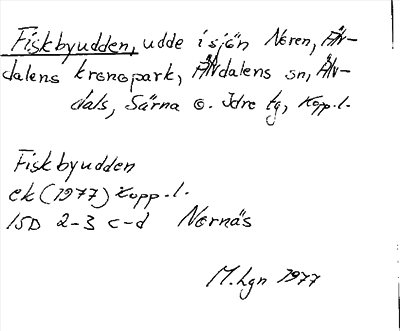 Fiskbyudden, udde i sjön Noren, Älv-
dalens kronopark, Älvdalens sn, Älv-
dals, Särna o. Idre tg, Kopp.l.
Fiskbyudden
ek (1977) Kopp.l.
15D 2-3 c-d Nornäs
M.Lgn 1977